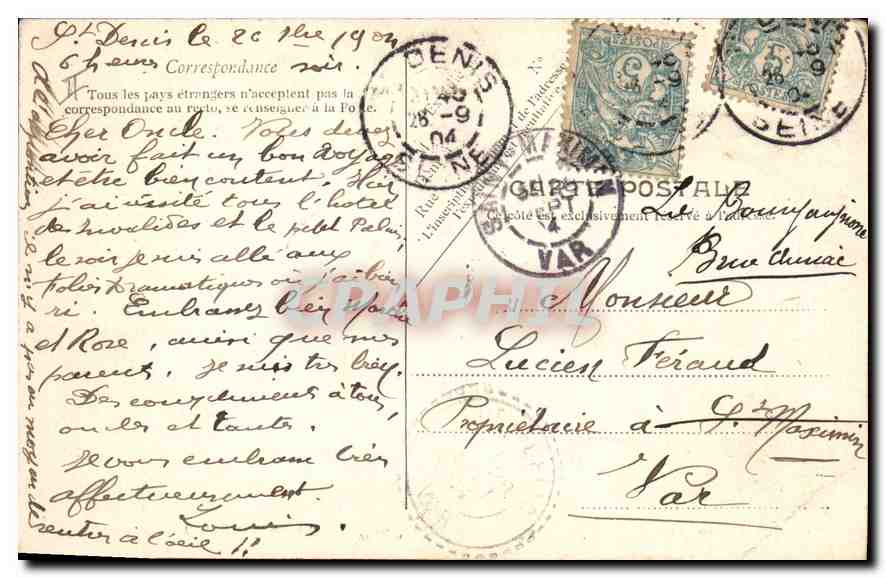 St Denis le 26 7bre 1904
6 heures soir.
Correspondance
Tous les pays étrangers n'acceptent pas la
correspondance au recto, se renseigner à la Poste.
Cher Oncle. Vous devez
avoir fait un bon voyage
et être bien content. Hier
j'ai visité tous l'hotel
des Invalides et le petit Palais,
le soir je suis allé aux
Folies Dramatiques où j'ai bien
ri. Embrassez bien
et Rose, ainsi que mes
parents. Je suis très bien.
Des compliments à tous,
oncles et tantes.
Je vous embrasse bien
affectueusement
Louis
il n'y a pas eu moyen de
rentrer à l'oeil !!
ST DENIS
26 -9
04
SEINE
Nº
Rue
de l'adresse
CARTE POSTALE
Ce côté est exclusivement réservé à l'adresse.
SAINT MAXIMIN
29
SEPT
04
VAR
POSTES
5
POSTES
5
26 -9
04
SEINE
Monsieur
Lucien Féraud
Propriétaire à St Maximin
Var
CPARAMA